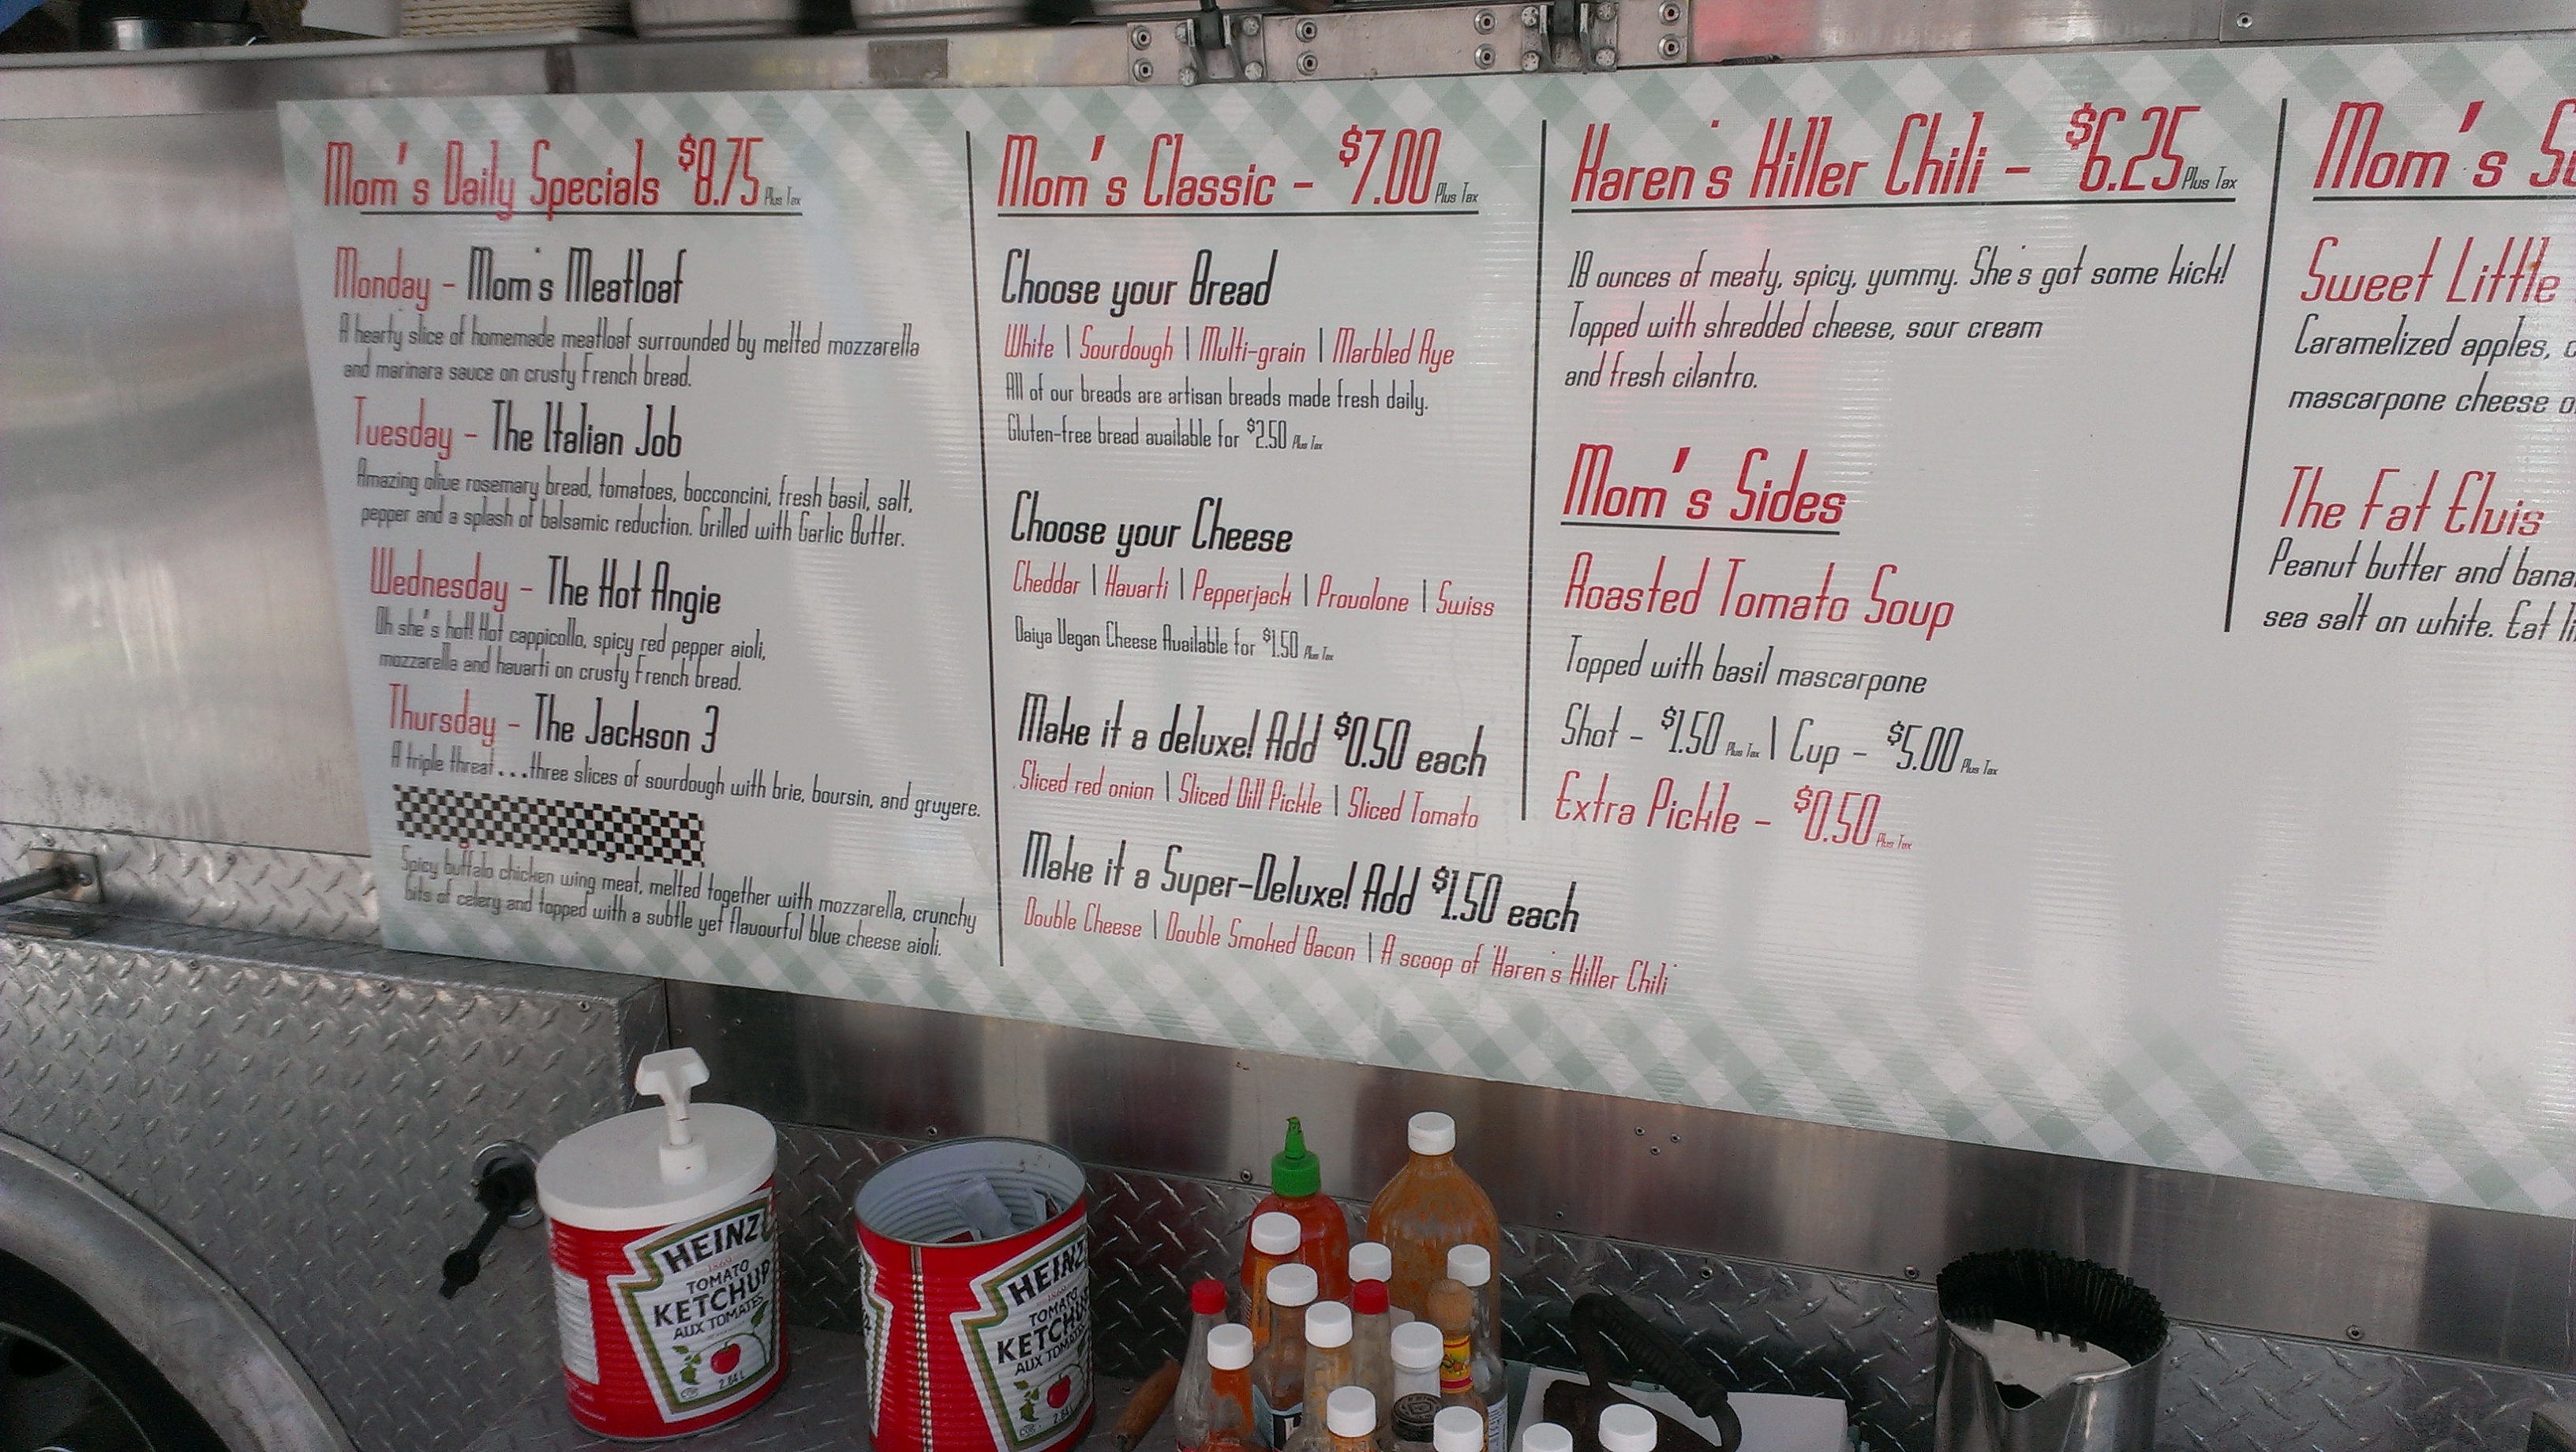 Mom's Daily Specials $8.75 Plus Tax
Monday - Mom's Meatloaf
A hearty slice of homemade meatloaf surrounded by melted mozzarella
and marinara sauce on crusty French bread.
Tuesday - The Italian Job
Amazing olive rosemary bread, tomatoes, bocconcini, fresh basil, salt,
pepper and a splash of balsamic reduction. Grilled with Garlic Butter.
Wednesday - The Hot Angie
Oh she's hot! Hot cappicollo, spicy red pepper aioli,
mozzarella and havarti on crusty French bread.
Thursday - The Jackson 3
A triple threat...three slices of sourdough with brie, boursin, and gruyere.
Spicy buffalo chicken wing meat, melted together with mozzarella, crunchy
bits of celery and topped with a subtle yet flavourful blue cheese aioli.
Mom's Classic - $7.00 Plus Tax
Choose your Bread
White | Sourdough | Multi-grain | Marbled Rye
All of our breads are artisan breads made fresh daily.
Gluten-free bread available for $2.50 Plus Tax
Choose your Cheese
Cheddar | Havarti | Pepperjack | Provolone | Swiss
Daiya Vegan Cheese Available for $1.50 Plus Tax
Make it a deluxe! Add $0.50 each
Sliced red onion | Sliced Dill Pickle | Sliced Tomato
Make it a Super-Deluxe! Add $1.50 each
Double Cheese | Double Smoked Bacon | A scoop of 'Karen's Killer Chili'
Karen's Killer Chili - $6.25 Plus Tax
18 ounces of meaty, spicy, yummy. She's got some kick!
Topped with shredded cheese, sour cream
and fresh cilantro.
Mom's Sides
Roasted Tomato Soup
Topped with basil mascarpone
Shot - $1.50 Plus Tax | Cup - $5.00 Plus Tax
Extra Pickle - $0.50 Plus Tax
Mom's
Sweet Little
Caramelized apples,
mascarpone cheese
The Fat Elvis
Peanut butter and
sea salt on white. Eat
HEINZ
TOMATO
KETCHUP
AUX TOMATES
2.84 L
HEINZ
TOMATO
KETCHUP
AUX
2.84